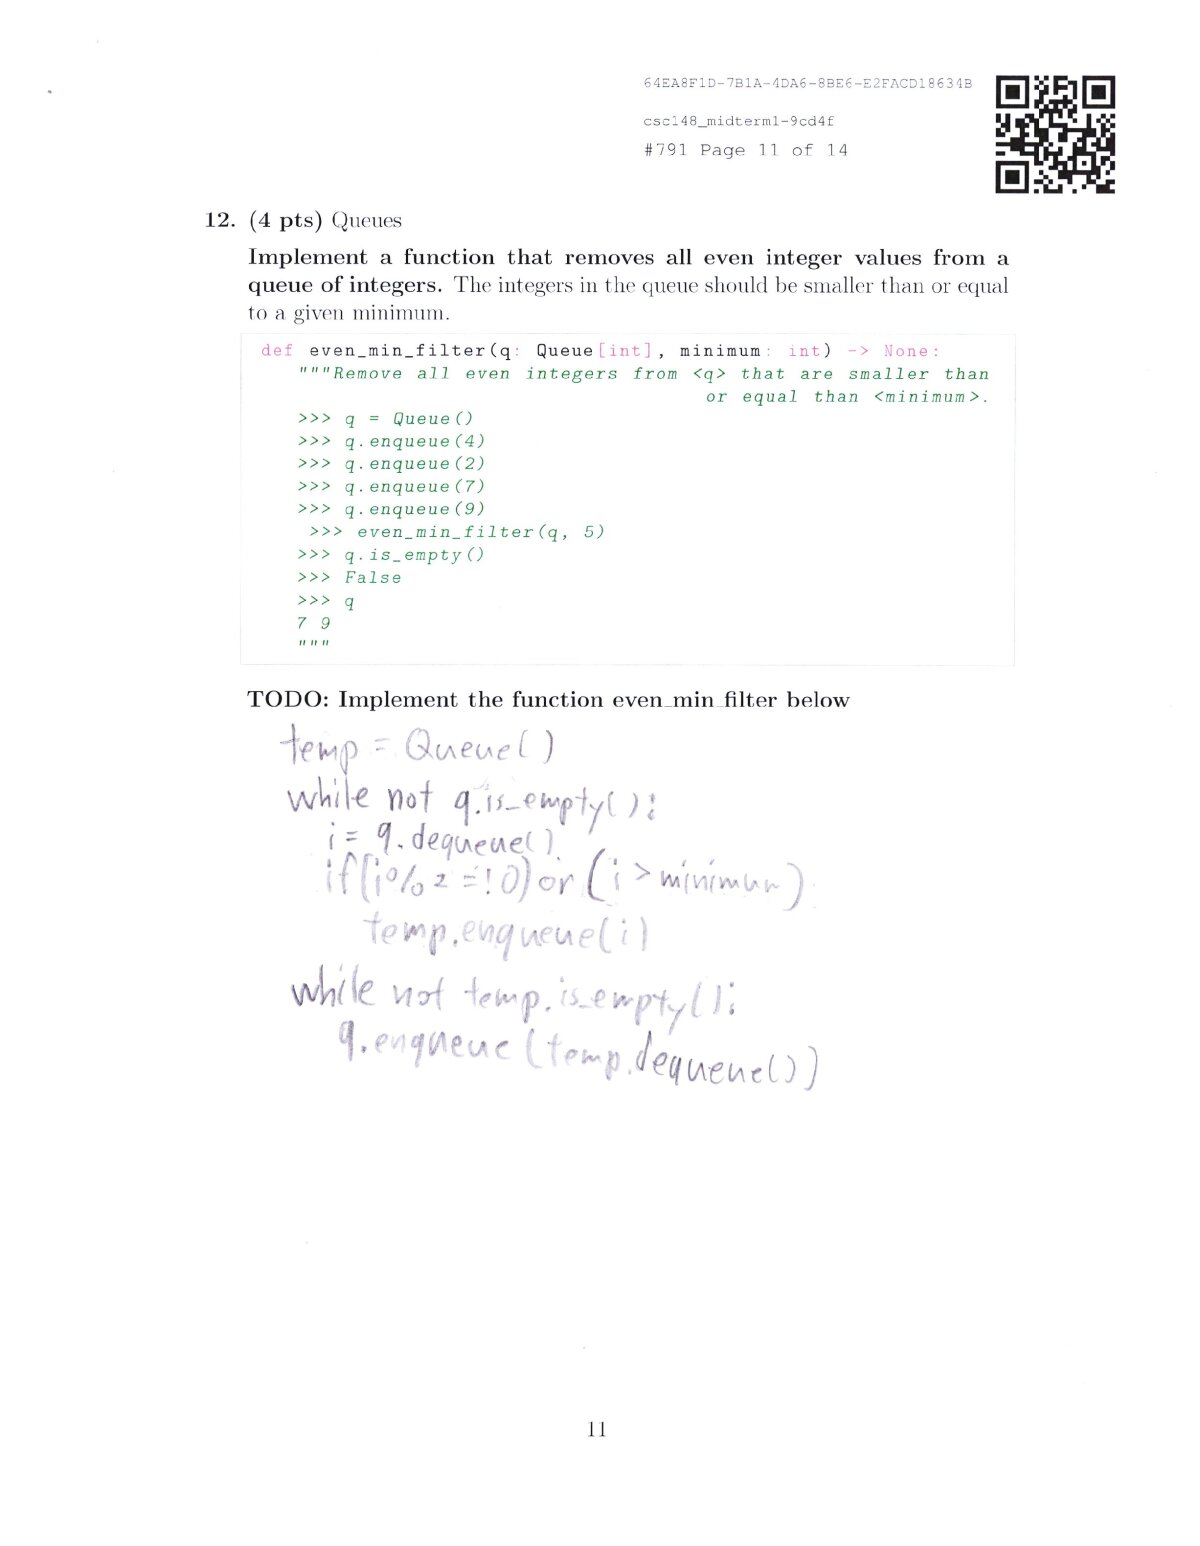 64EA8F1D-7B1A-4DA6-8BE6-E2FACD18634B
csc148_midterm1-9cd4f
#791 Page 11 of 14
12. (4 pts) Queues
Implement a function that removes all even integer values from a
queue of integers. The integers in the queue should be smaller than or equal
to a given minimum.
def even_min_filter(q: Queue[int], minimum: int) -> None:
"""Remove all even integers from <q> that are smaller than
or equal than <minimum>.
>>> q = Queue()
>>> q.enqueue(4)
>>> q.enqueue(2)
>>> q.enqueue(7)
>>> q.enqueue(9)
>>> even_min_filter(q, 5)
>>> q.is_empty()
>>> False
>>> q
7 9
"""
TODO: Implement the function even_min_filter below
temp = Queue()
while not q.is_empty():
i = q.dequeue()
if(i%2 =! 0) or (i > minimum)
temp.enqueue(i)
while not temp.is_empty():
q.enqueue(temp.dequeue())
11